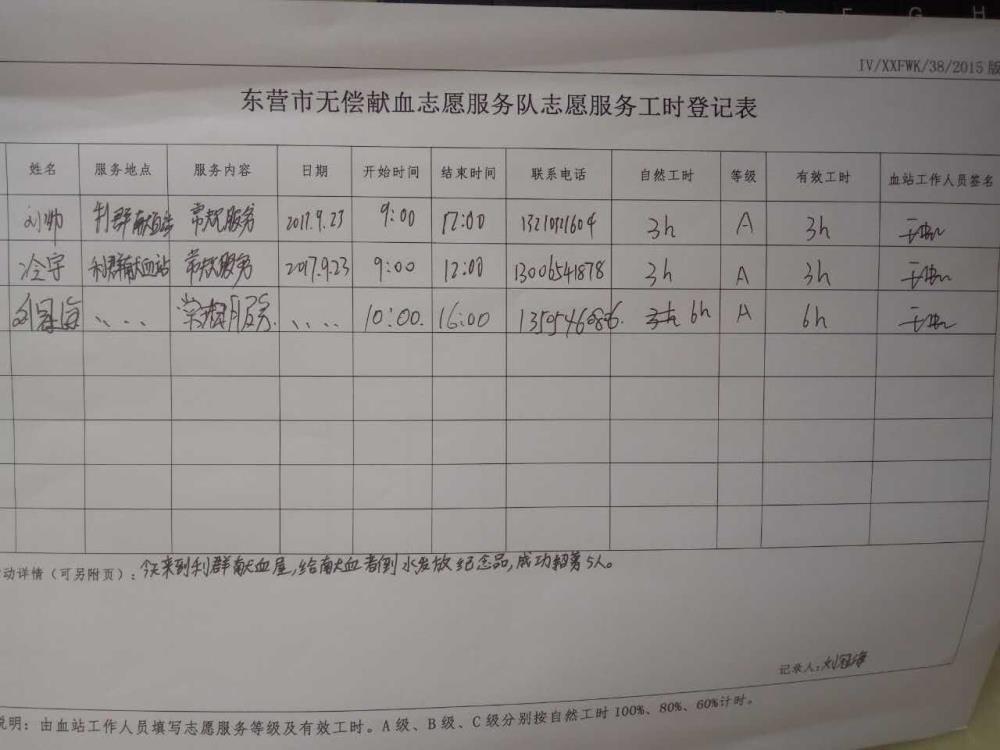 IV/XXFWK/38/2015版
东营市无偿献血志愿服务队志愿服务工时登记表
姓名 服务地点 服务内容 日期 开始时间 结束时间 联系电话 自然工时 等级 有效工时 血站工作人员签名
刘帅 利群献血站 常规服务 2017.9.23 9:00 12:00 3h A 3h
冷宇 利群献血站 常规服务 2017.9.23 9:00 12:00 13006541878 3h A 3h
刘冠海 、、、、 常规服务 、、、、 10:00. 16:00 6h A 6h
动详情（可另附页）：今天来到利群献血屋,给献血者倒水发放纪念品,成功招募5人。
记录人:刘冠海
说明：由血站工作人员填写志愿服务等级及有效工时。A级、B级、C级分别按自然工时100%、80%、60%计时。